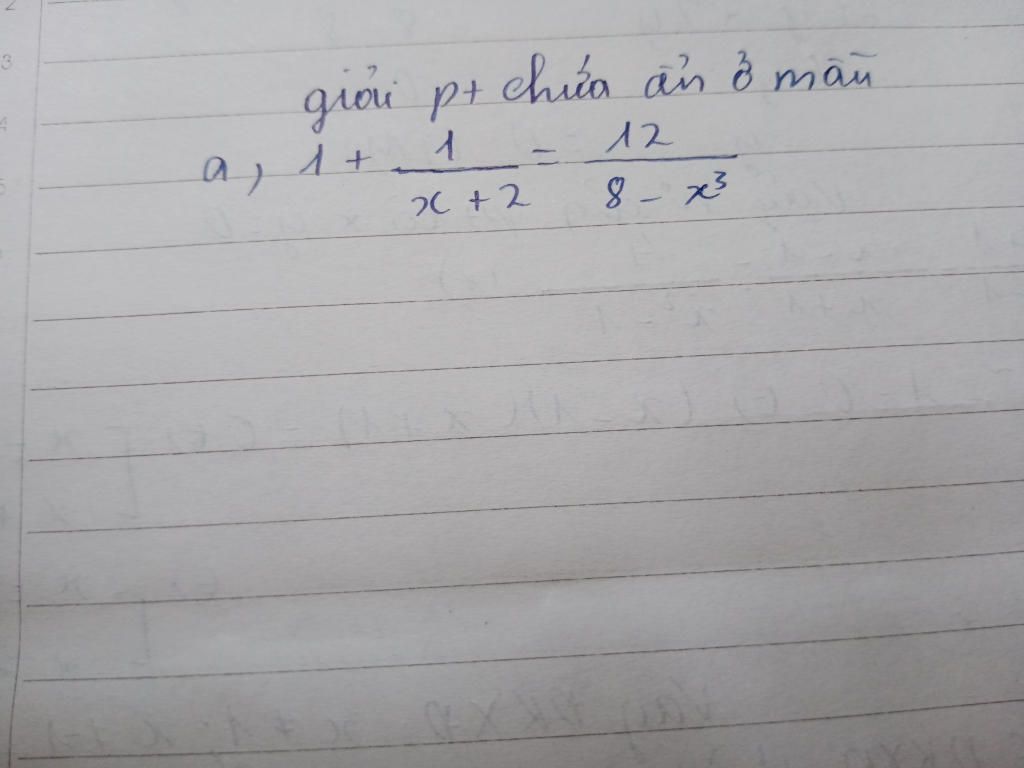 giải pt chứa ẩn ở mẫu
a, 1 + 1/(x + 2) = 12/(8 - x³)